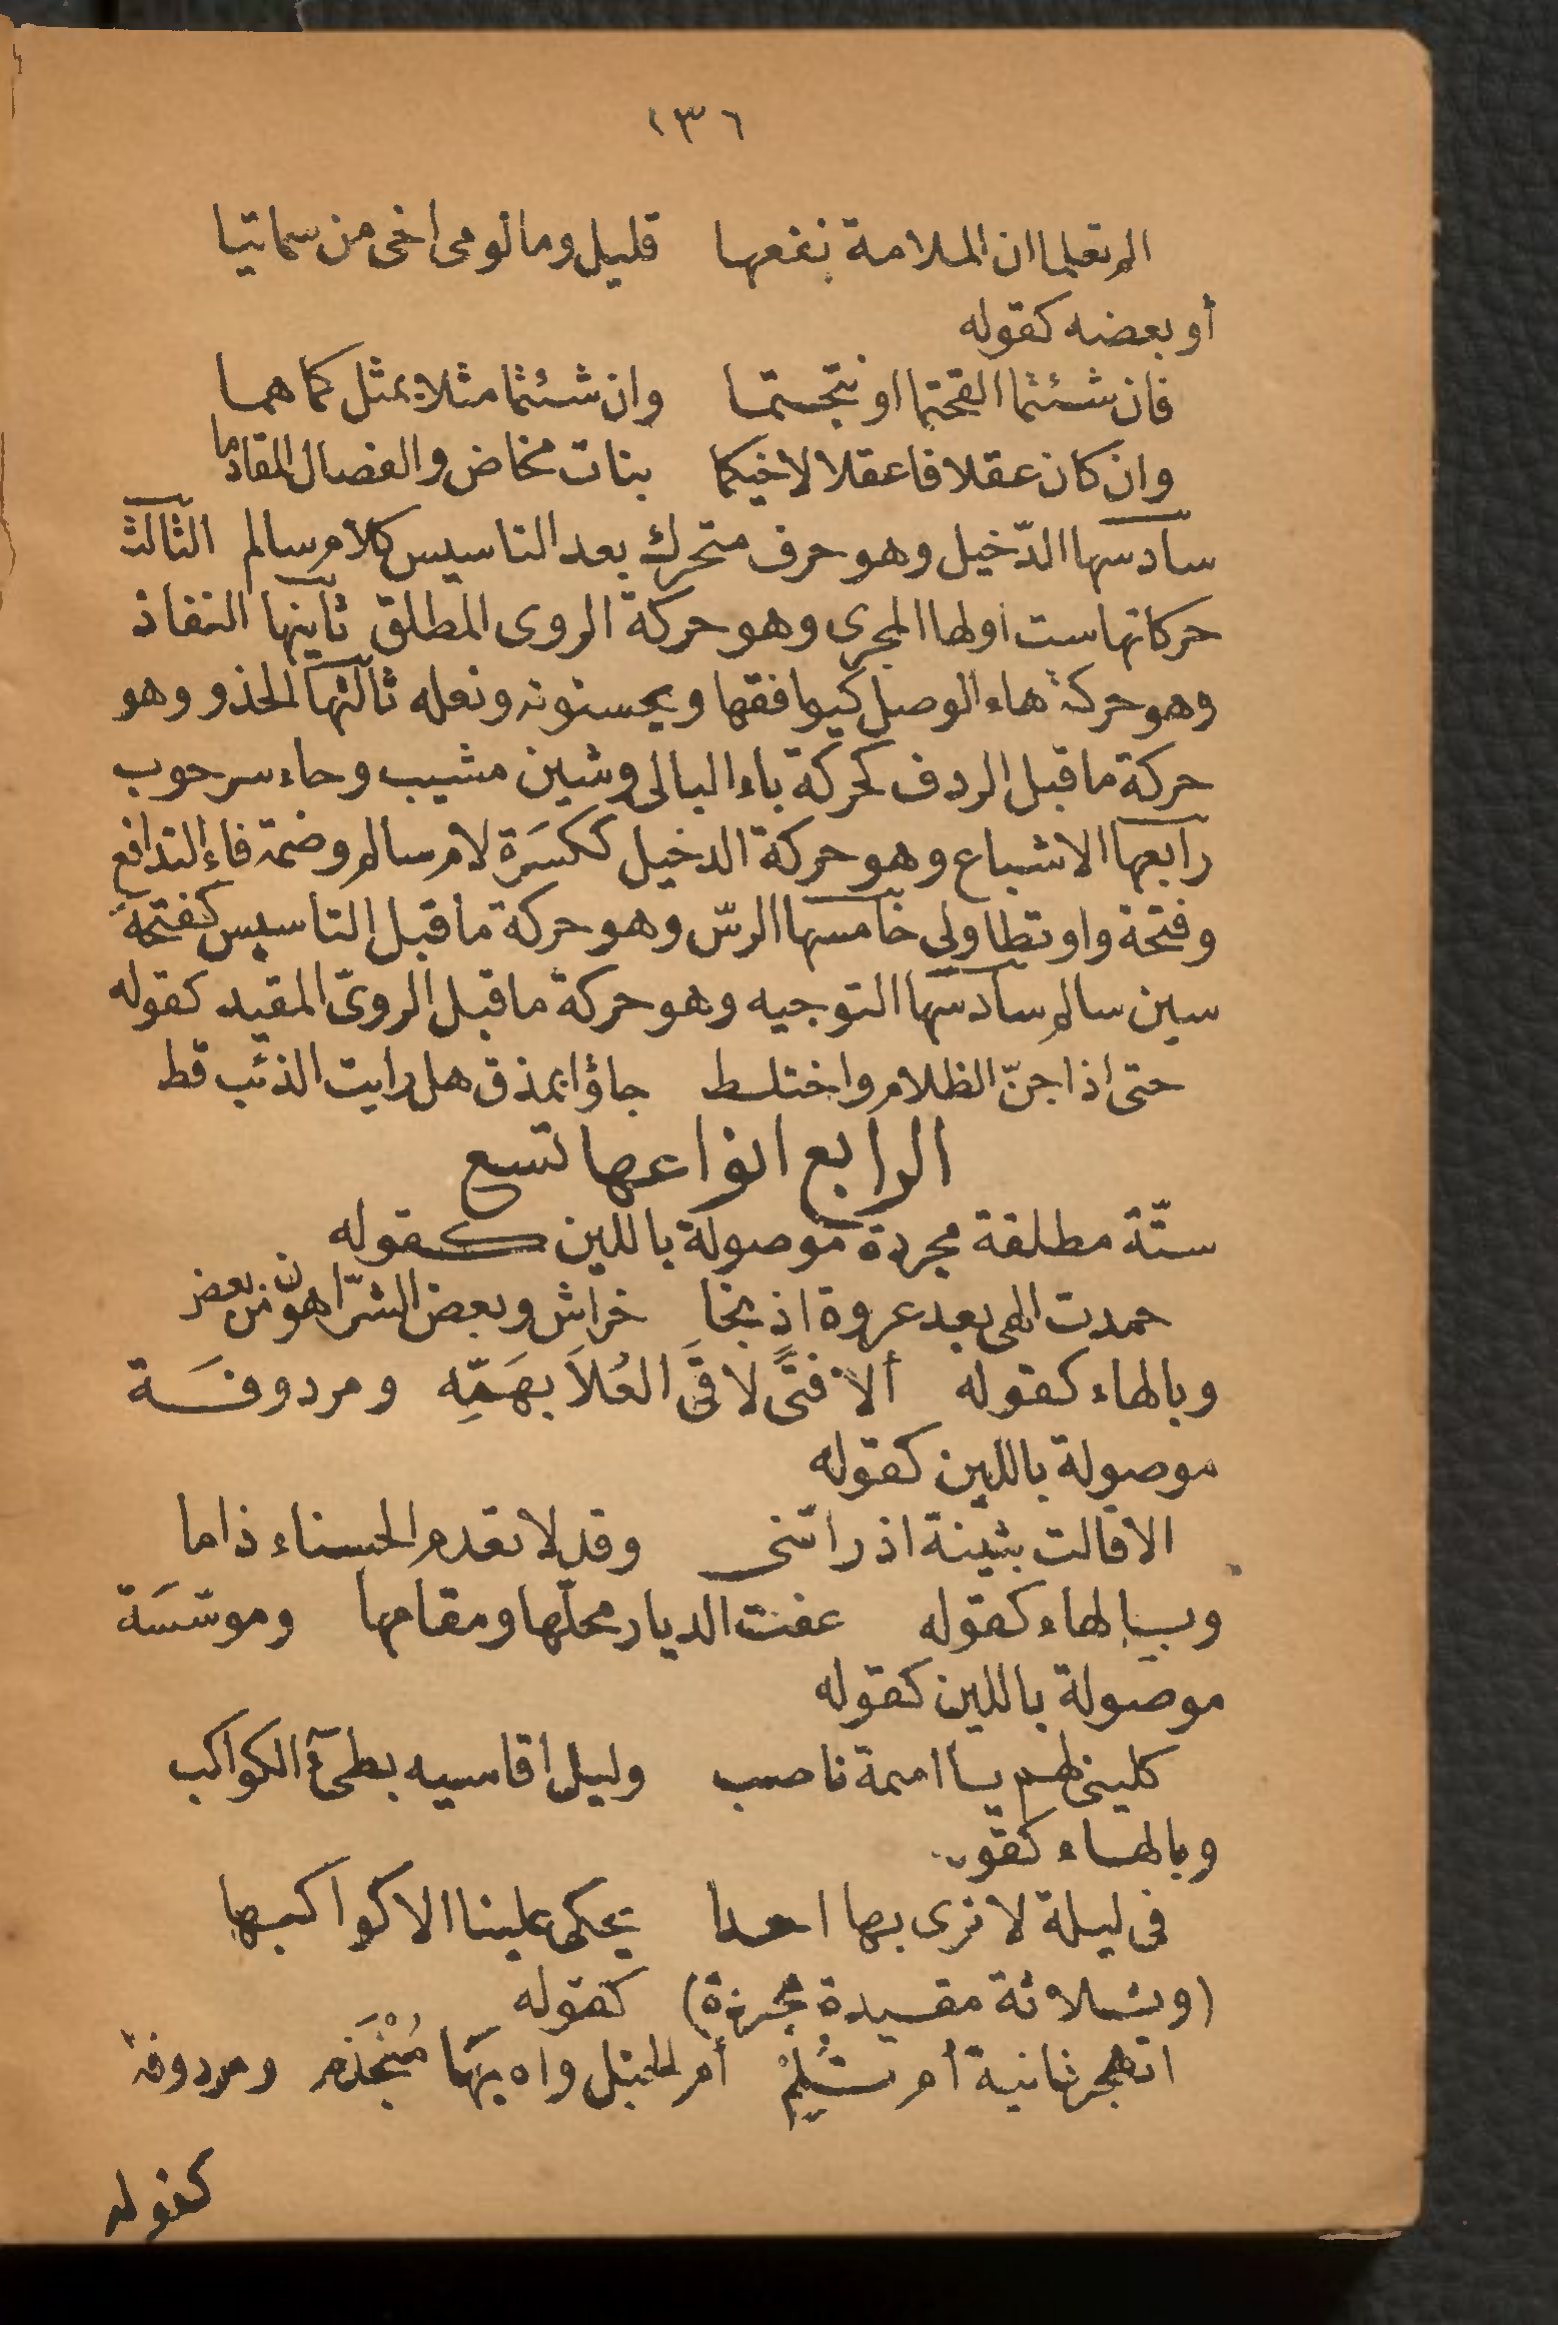 ١٣٦
الم تعلما ان الملامة نفعها قليل وما لومى اخى من سماتيا
أو بعضه كقوله
فان شئتما القحتما او نتجستما وان شئتما مثلا بمثل كما هما
وان كان عقلا فاعقلا لاخيكما بنات مخاض والفصال المقادما
سادسها الدّخيل وهو حرف متحرك بعد التاسيس كلام سالم الثالث
حركاتها ست اولها المجرى وهو حركة الروى المطلق ثانيها النفاذ
وهو حركة هاء الوصل كيوافقها ويحسنونه ونعله ثالثها الحذو وهو
حركة ما قبل الردف كحركة باء البالى وشين مشيب وحاء سرحوب
رابعها الاشباع وهو حركة الدخيل ككسَرة لام سالم وضمة فاء التدافع
وفتحة واو تطاولى خامسها الرسّ وهو حركة ما قبل التاسيس كفتحة
سين سالم سادسها التوجيه وهو حركة ما قبل الروىّ المقيد كقوله
حتى اذا جنّ الظلام واختلط جاؤا بمذق هل رايت الذئب قط
الرابع انواعها تسع
ستّة مطلقة مجردة موصولة باللين كقوله
حمدت الهى بعد عروة اذ نجا خراش وبعض الشرّ اهون من بعض
وبالهاء كقوله ألا فتًى لاقَى العُلاَ بهَمِّه ومردوفَة
موصولة باللين كقوله
الا قالت بثينة اذ راتنى وقد لا تعدم الحسناء ذاما
وبالهاء كقوله عفت الديار محلّها ومقامها وموسّسَة
موصولة باللين كقوله
كلينى لهم يا اميمة ناصب وليل اقاسيه بطىء الكواكب
وبالهاء كقوله
فى ليلة لا نرى بها احدا يحكى علينا الا كواكبها
(وثلاثة مقيدة مجردة) كقوله
اتهجر غانية أم تُلِمْ أم الحبل واه بها مُنْجَذم ومردوفة
كقوله